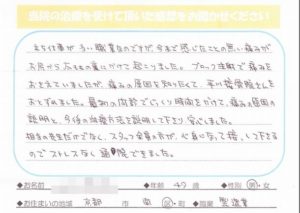 当院の治療を受けて頂いた感想をお聞かせください
立ち仕事が多い職業なのですが今まで感じたことの無い痛みが
お尻から太ももの裏にかけて起こりました。ブロック注射で痛みを
おさえていましたが、痛みの原因を知りたくて、平川整骨院さんを
おとずれました。最初の問診でじっくり時間をかけて、痛みの原因の
説明と、今後の治療方法を説明して下さり安心しました。
担当の先生だけでなく、スタッフ全員の方が、心身になって接して下さる
のでストレスなく通院できました。
◆お名前 ◆年齢 47 歳 ◆性別 男・女
◆お住まいの地域 京都 市 区・町 ◆職業 製造業